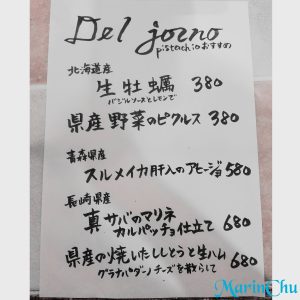 Del jorno
pistachioおすすめ
北海道産
生牡蠣 380
バジルソースとレモンで
県産野菜のピクルス 380
青森県産
スルメイカ肝入のアヒージョ580
長崎県産
真サバのマリネ
カルパッチョ仕立て 680
県産の焼いたししとうと生ハム 680
グラナパダーノチーズを散らして
MarinChu